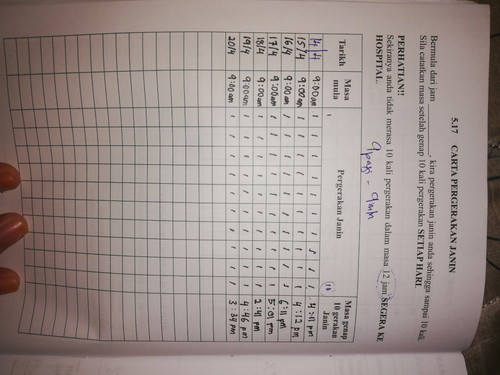 5.17 CARTA PERGERAKAN JANIN
Bermula dari jam , kira pergerakan janin anda sehingga sampai 10 kali
Sila catatkan masa setelah genap 10 kali pergerakan SETIAP HARI.
PERHATIAN!!
Sekiranya anda tidak merasa 10 kali pergerakan dalam masa 12 jam SEGERA KE
HOSPITAL.
9 pagi - 9
Tarikh Masa mula Pergerakan Janin Masa genap 10 gerakan Janin
1 10
14/4 9:00 am 1 1 1 1 1 1 1 1 1 1 4:11 pm
15/4 9:00 am 1 1 1 1 1 1 1 1 1 1 4:12 pm
16/4 9:00 am 1 1 1 1 1 1 1 1 1 1 6:11 pm
17/4 9:00 am 1 1 1 1 1 1 1 1 1 1 5:01 pm
18/4 9:00 am 1 1 1 1 1 1 1 1 1 1 2:41 pm
19/4 9:00 am 1 1 1 1 1 1 1 1 1 1 4:46 pm
20/4 9:00 am 1 1 1 1 1 1 1 1 1 1 3:34 pm